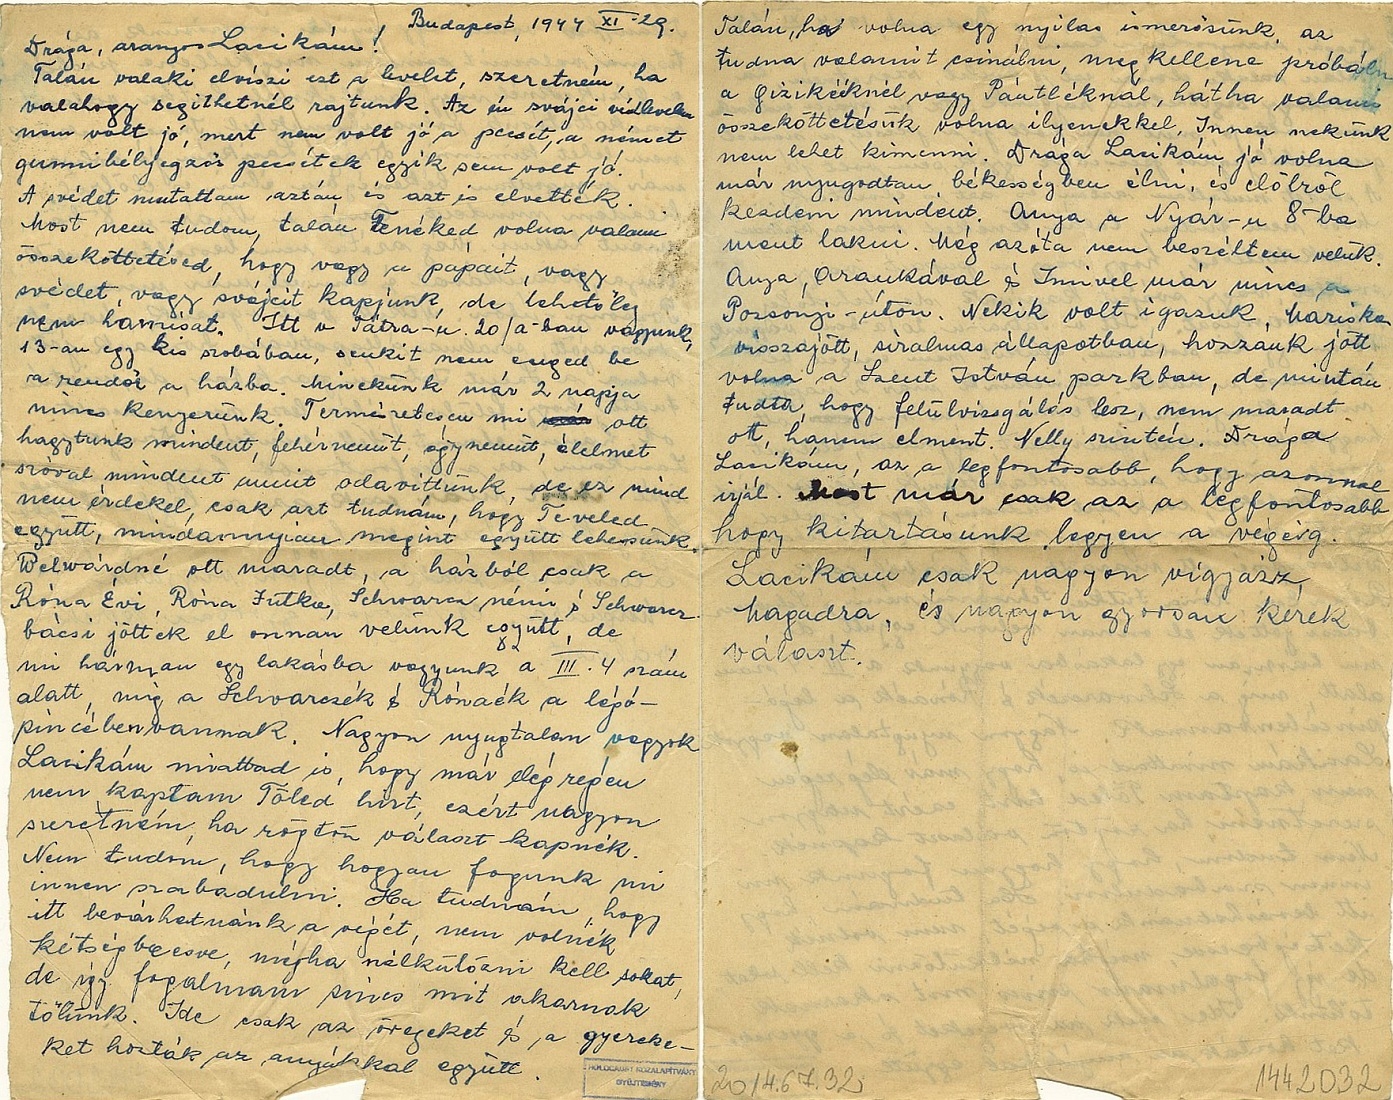 Budapest, 1944 XI-29.
Drága, aranyos Lacikám!
Talán valaki elviszi ezt a levelet, szeretném, ha
valahogy segithetnél rajtunk. Az én svájci védlevelem
nem volt jó, mert nem volt jó a pecsét, a német
gumibélyegzős pecsétek egyik sem volt jó.
A svédet mutattam aztán és azt is elvették.
Most nem tudom, talán Tenéked volna valami
összeköttetésed, hogy vagy a pápait, vagy
svédet, vagy svájcit kapjunk, de lehetőleg
nem hamisat. Itt v Tátra-u. 20/a-ban vagyunk,
13-an egy kis szobában, senkit nem enged be
a rendőr a házba. Minekünk már 2 napja
nincs kenyerünk. Természetesen mi ott
hagytunk mindent, fehérneműt, ágyneműt, élelmet
szóval mindent amit odavittünk, de ez mind
nem érdekel, csak azt tudnám, hogy Teveled
együtt, mindannyian megint együtt lehessünk.
Welwárdné ott maradt, a házból csak a
Róna Évi, Róna Jutka, Schwarcz néni és Schwarcz
bácsi jöttek el onnan velünk együtt, de
mi hárman egy lakásba vagyunk a III. 4 szám
alatt, mig a Schwarczék és Rónáék a légó-
pincében vannak. Nagyon nyugtalan vagyok
Lacikám miattad is, hogy már elég régen
nem kaptam Tőled hirt, ezért nagyon
szeretném, ha rögtön választ kapnék.
Nem tudom, hogy hogyan fogunk mi
innen szabadulni. Ha tudnám, hogy
itt bevárhatnánk a végét, nem volnék
kétségbeesve, mégha nélkülözni kell sokat,
de igy fogalmam sincs mit akarnak
tőlünk. Ide csak az öregeket és a gyereke-
ket hozták az anyákkal együtt.
HOLOCAUST KÖZALAPÍTVÁNY
GYŰJTEMÉNY
Talán, ha volna egy nyilas ismerősünk, az
tudna valamit csinálni, meg kellene próbálni
a Gizikéknél vagy Páutléknál, hátha valami
összeköttetésük volna ilyenekkel. Innen nekünk
nem lehet kimenni. Drága Lacikám, jó volna
már nyugodtan, békességben élni, és elölről
kezdeni mindent. Anya a Nyár-u 8-ba
ment lakni. Még azóta nem beszéltem velük.
Anya, Arankával és Imivel már nincs a
Pozsonyi-úton. Nekik volt igazuk, Mariska
visszajött, siralmas állapotban, hozzánk jött
volna a Szent István parkban, de miután
tudta, hogy felülvizsgálás lesz, nem maradt
ott, hanem elment. Nelly szintén. Drága
Lacikám, az a legfontosabb, hogy azonnal
irjál. Most már csak az a legfontosabb
hogy kitartásunk legyen a végéig.
Lacikám csak nagyon vigyázz
magadra, és nagyon gyorsan kérek
választ.
2014.67.32.
1442032